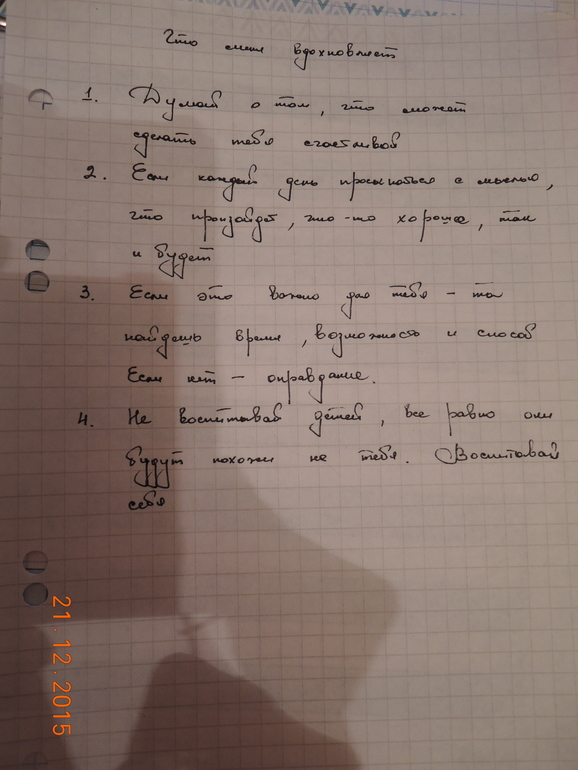 Что меня вдохновляет
1. Думай о том, что может
сделать тебя счастливой
2. Если каждый день просыпаться с мыслью,
что произайдет, что-то хорошее, так
и будет
3. Если это важно для тебя – ты
найдешь время, возможность и способ
Если нет – оправдание.
4. Не воспитывай детей, все равно они
будут похожи на тебя. Воспитовай
себя
21.12.2015